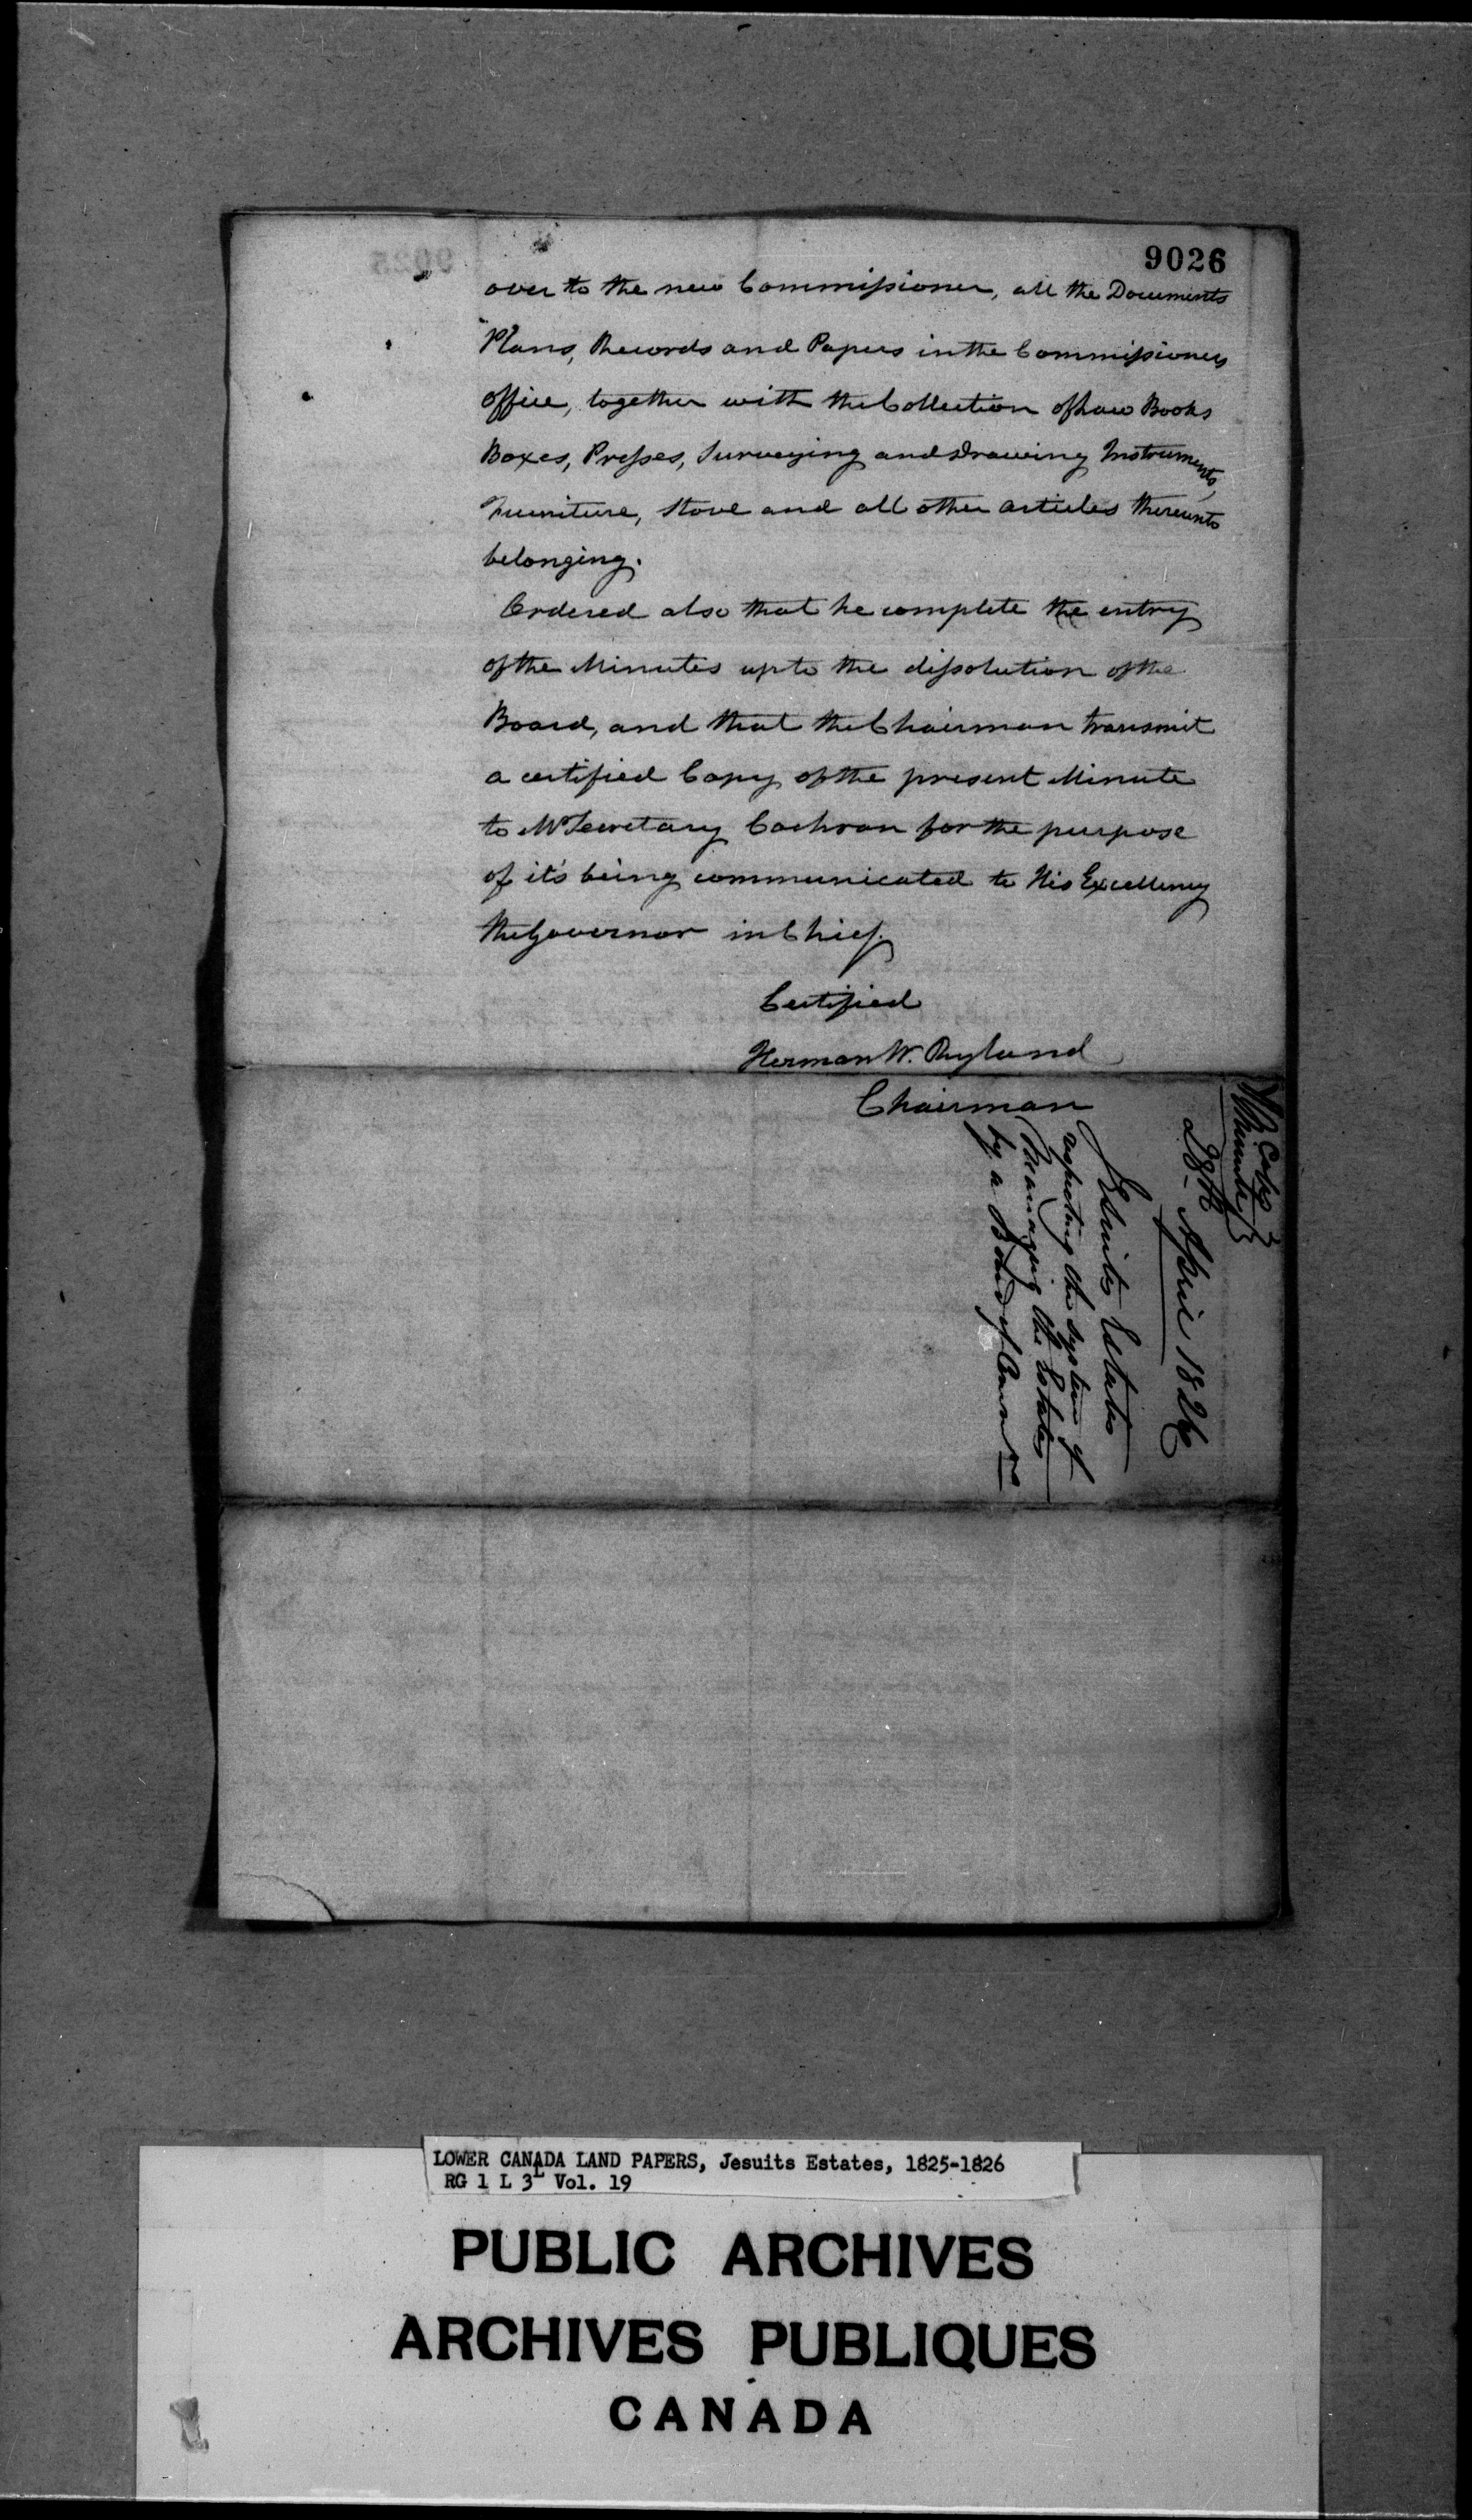 9026
over to the new Commissioner, all the Documents
Plans, Records and Papers in the Commissioners
office, together with the Collection of Law Books
Boxes, Presses, Surveying and Drawing Instruments,
Furniture, Stove and all other articles thereunto
belonging.
Ordered also that he complete the entry
of the Minutes up to the dissolution of the
Board, and that the Chairman transmit
a certified Copy of the present Minute
to Mr Secretary Cochran for the purpose
of it's being communicated to His Excellency
the Governor in Chief.
Certified
Herman W. Ryland
Chairman
Copy
Minute
28th April 1826
Jesuits Estates
respecting the system of
Managing the Estates
by a Board of Comrs
LOWER CANADA LAND PAPERS, Jesuits Estates, 1825-1826
RG 1 L 3L Vol. 19
PUBLIC ARCHIVES
ARCHIVES PUBLIQUES
CANADA